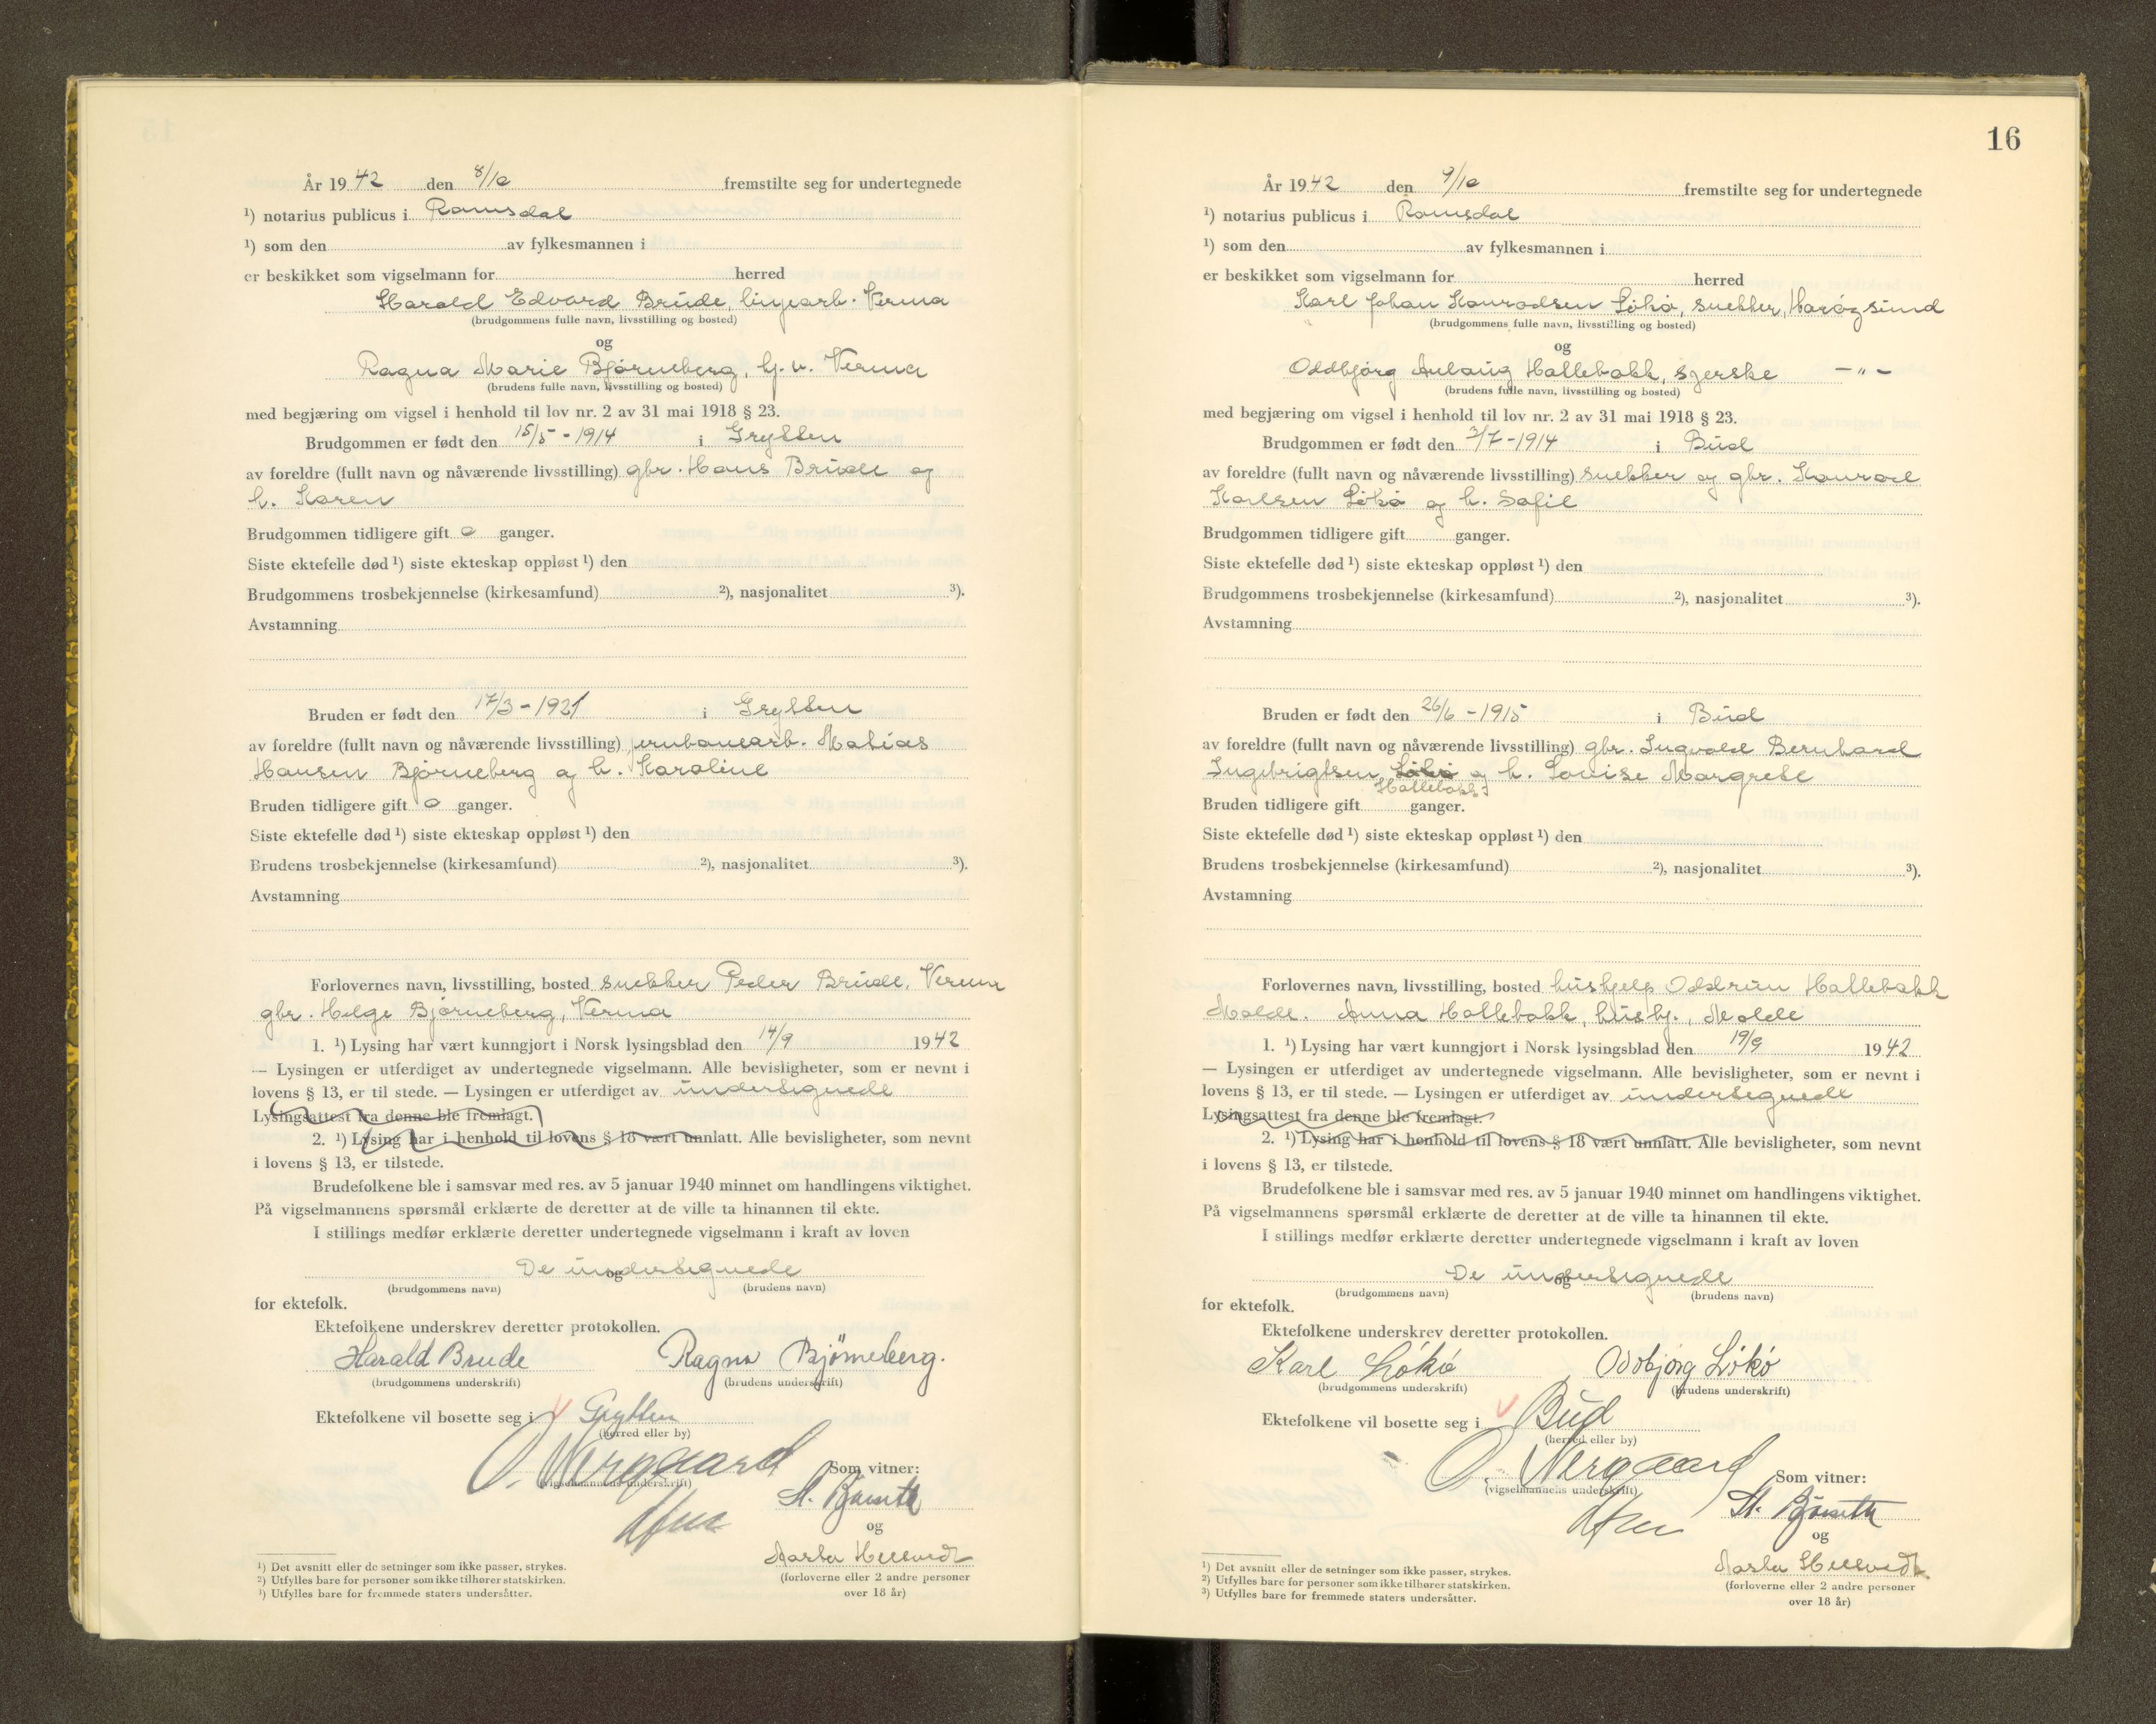 År 1942 den 8/10 fremstilte seg for undertegnede
¹) notarius publicus i Romsdal
¹) som den av fylkesmannen i
er beskikket som vigselmann for herred
Harald Edvard Brude, linjearb. Verma
(brudgommens fulle navn, livsstilling og bosted)
og
Ragna Marie Bjørneberg, hj. v. Verma
(brudens fulle navn, livsstilling og bosted)
med begjæring om vigsel i henhold til lov nr. 2 av 31 mai 1918 § 23.
Brudgommen er født den 15/5 - 1914 i Grytten
av foreldre (fullt navn og nåværende livsstilling) gbr. Hans Brude og
h. Karen
Brudgommen tidligere gift 0 ganger.
Siste ektefelle død ¹) siste ekteskap oppløst ¹) den
Brudgommens trosbekjennelse (kirkesamfund) ²), nasjonalitet ³).
Avstamning
Bruden er født den 17/3 - 1921 i Grytten
av foreldre (fullt navn og nåværende livsstilling) jernbanearb. Matias
Hansen Bjørneberg og h. Karoline
Bruden tidligere gift 0 ganger.
Siste ektefelle død ¹) siste ekteskap oppløst ¹) den
Brudens trosbekjennelse (kirkesamfund) ²), nasjonalitet ³).
Avstamning
Forlovernes navn, livsstilling, bosted snekker Peder Brude, Verma
gbr. Helge Bjørneberg, Verma
1. ¹) Lysing har vært kunngjort i Norsk lysingsblad den 14/9 1942
— Lysingen er utferdiget av undertegnede vigselmann. Alle bevisligheter, som er nevnt i
lovens § 13, er til stede. — Lysingen er utferdiget av undertegnede
Lysingsattest fra denne ble fremlagt.
2. ¹) Lysing har i henhold til lovens § 18 vært unnlatt. Alle bevisligheter, som nevnt
i lovens § 13, er tilstede.
Brudefolkene ble i samsvar med res. av 5 januar 1940 minnet om handlingens viktighet.
På vigselmannens spørsmål erklærte de deretter at de ville ta hinannen til ekte.
I stillings medfør erklærte deretter undertegnede vigselmann i kraft av loven
De undertegnede
og
(brudgommens navn) (brudens navn)
for ektefolk.
Ektefolkene underskrev deretter protokollen.
Harald Brude Ragna Bjørneberg.
(brudgommens underskrift) (brudens underskrift)
Ektefolkene vil bosette seg i Grytten
(herred eller by)
O. Nergaard
(vigselmannens underskrift)
Som vitner:
og
(forloverne eller 2 andre personer
over 18 år)
¹) Det avsnitt eller de setninger som ikke passer, strykes.
²) Utfylles bare for personer som ikke tilhører statskirken.
³) Utfylles bare for fremmede staters undersåtter.
16
År 1942 den 9/10 fremstilte seg for undertegnede
¹) notarius publicus i Romsdal
¹) som den av fylkesmannen i
er beskikket som vigselmann for herred
Karl Johan Konradsen Løkø, snekker, Harøysund
(brudgommens fulle navn, livsstilling og bosted)
og
Oddbjørg Aulaug Hallebakk, syerske — " —
(brudens fulle navn, livsstilling og bosted)
med begjæring om vigsel i henhold til lov nr. 2 av 31 mai 1918 § 23.
Brudgommen er født den 3/7 - 1914 i Bud
av foreldre (fullt navn og nåværende livsstilling) snekker og gbr. Konrad
Karlsen Løkø og h. Sofie
Brudgommen tidligere gift ganger.
Siste ektefelle død ¹) siste ekteskap oppløst ¹) den
Brudgommens trosbekjennelse (kirkesamfund) ²), nasjonalitet ³).
Avstamning
Bruden er født den 26/6 - 1915 i Bud
av foreldre (fullt navn og nåværende livsstilling) gbr. Ingvald Bernhard
Ingebrigtsen Løkø og h. Lovise Margrete
Hallebakk
Bruden tidligere gift ganger.
Siste ektefelle død ¹) siste ekteskap oppløst ¹) den
Brudens trosbekjennelse (kirkesamfund) ²), nasjonalitet ³).
Avstamning
Forlovernes navn, livsstilling, bosted hushjelp Oddrun Hallebakk
Molde. Anna Hallebakk, hushj., Molde
1. ¹) Lysing har vært kunngjort i Norsk lysingsblad den 19/9 1942
— Lysingen er utferdiget av undertegnede vigselmann. Alle bevisligheter, som er nevnt i
lovens § 13, er til stede. — Lysingen er utferdiget av undertegnede
Lysingsattest fra denne ble fremlagt.
2. ¹) Lysing har i henhold til lovens § 18 vært unnlatt. Alle bevisligheter, som nevnt
i lovens § 13, er tilstede.
Brudefolkene ble i samsvar med res. av 5 januar 1940 minnet om handlingens viktighet.
På vigselmannens spørsmål erklærte de deretter at de ville ta hinannen til ekte.
I stillings medfør erklærte deretter undertegnede vigselmann i kraft av loven
De undertegnede
og
(brudgommens navn) (brudens navn)
for ektefolk.
Ektefolkene underskrev deretter protokollen.
Karl Løkø Oddbjørg Løkø
(brudgommens underskrift) (brudens underskrift)
Ektefolkene vil bosette seg i Bud
(herred eller by)
O. Nergaard
(vigselmannens underskrift)
Som vitner:
og
(forloverne eller 2 andre personer
over 18 år)
¹) Det avsnitt eller de setninger som ikke passer, strykes.
²) Utfylles bare for personer som ikke tilhører statskirken.
³) Utfylles bare for fremmede staters undersåtter.